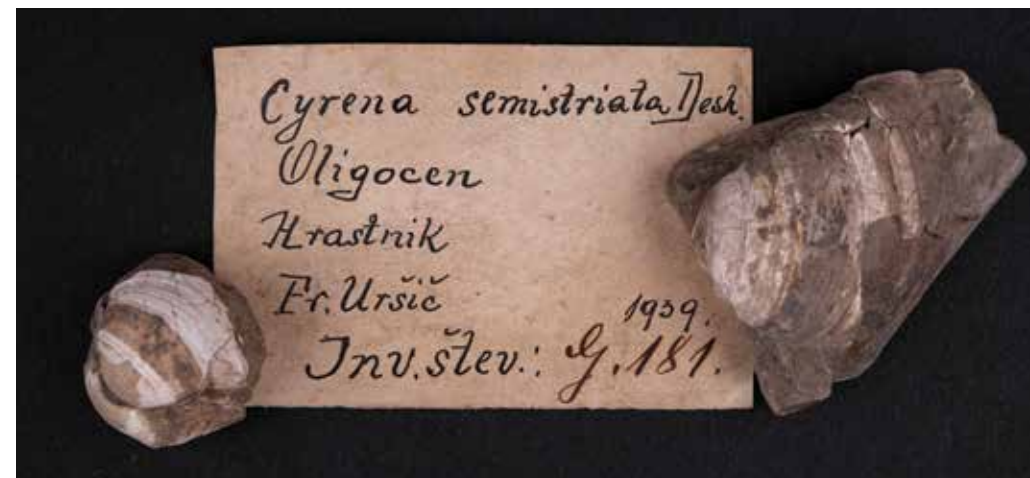 Cyrena semistriata Desh.
Oligocen
Hrastnik
Fr. Uršič
1939.
Inv. štev.: G. 181.